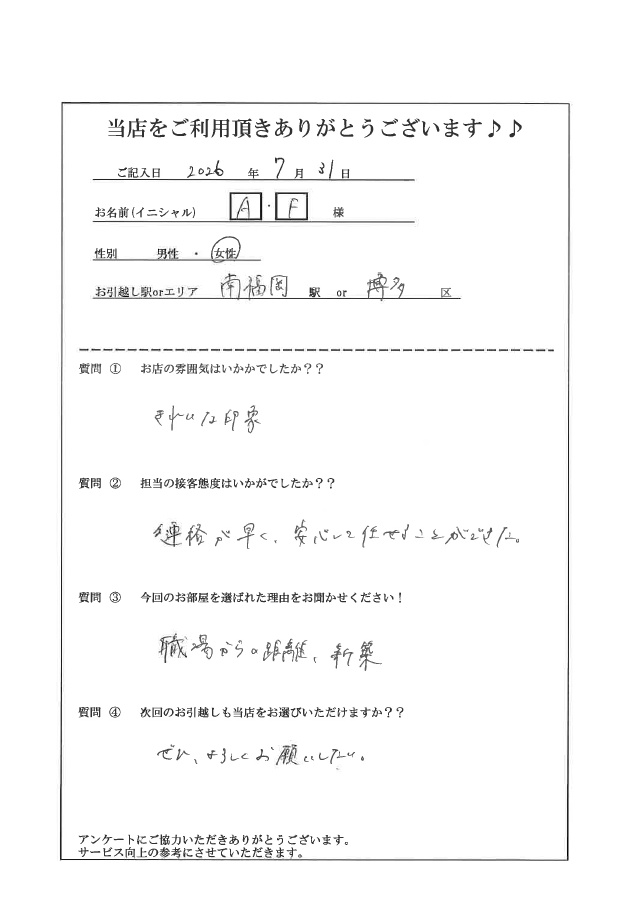 当店をご利用頂きありがとうございます♪♪
ご記入日 2026 年 7 月 31 日
お名前(イニシャル) A ・ F 様
性別 男性 ・ 女性
お引越し駅orエリア 南福岡 駅 or 博多 区
質問 ① お店の雰囲気はいかかでしたか??
きれいな印象
質問 ② 担当の接客態度はいかがでしたか??
連絡が早く、安心して任せることができた。
質問 ③ 今回のお部屋を選ばれた理由をお聞かせください!
職場からの距離、新築
質問 ④ 次回のお引越しも当店をお選びいただけますか??
ぜひ、よろしくお願いしたい。
アンケートにご協力いただきありがとうございます。
サービス向上の参考にさせていただきます。